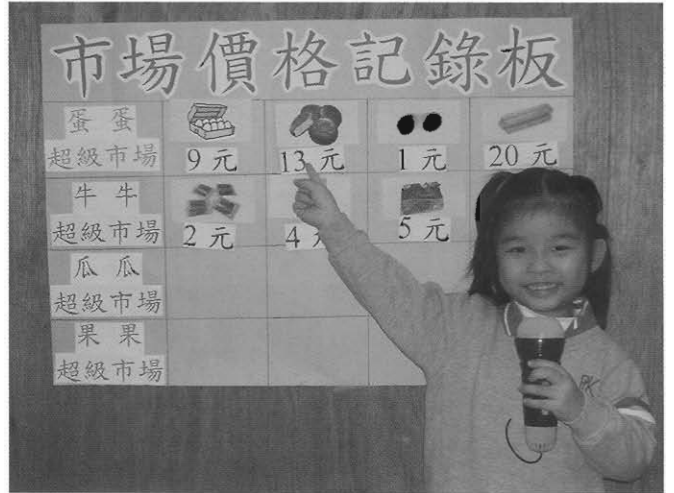 市場價格記錄板
蛋蛋
超級市場
9元 13元 1元 20元
牛牛
超級市場
2元 4 5元
瓜瓜
超級市場
果果
超級市場